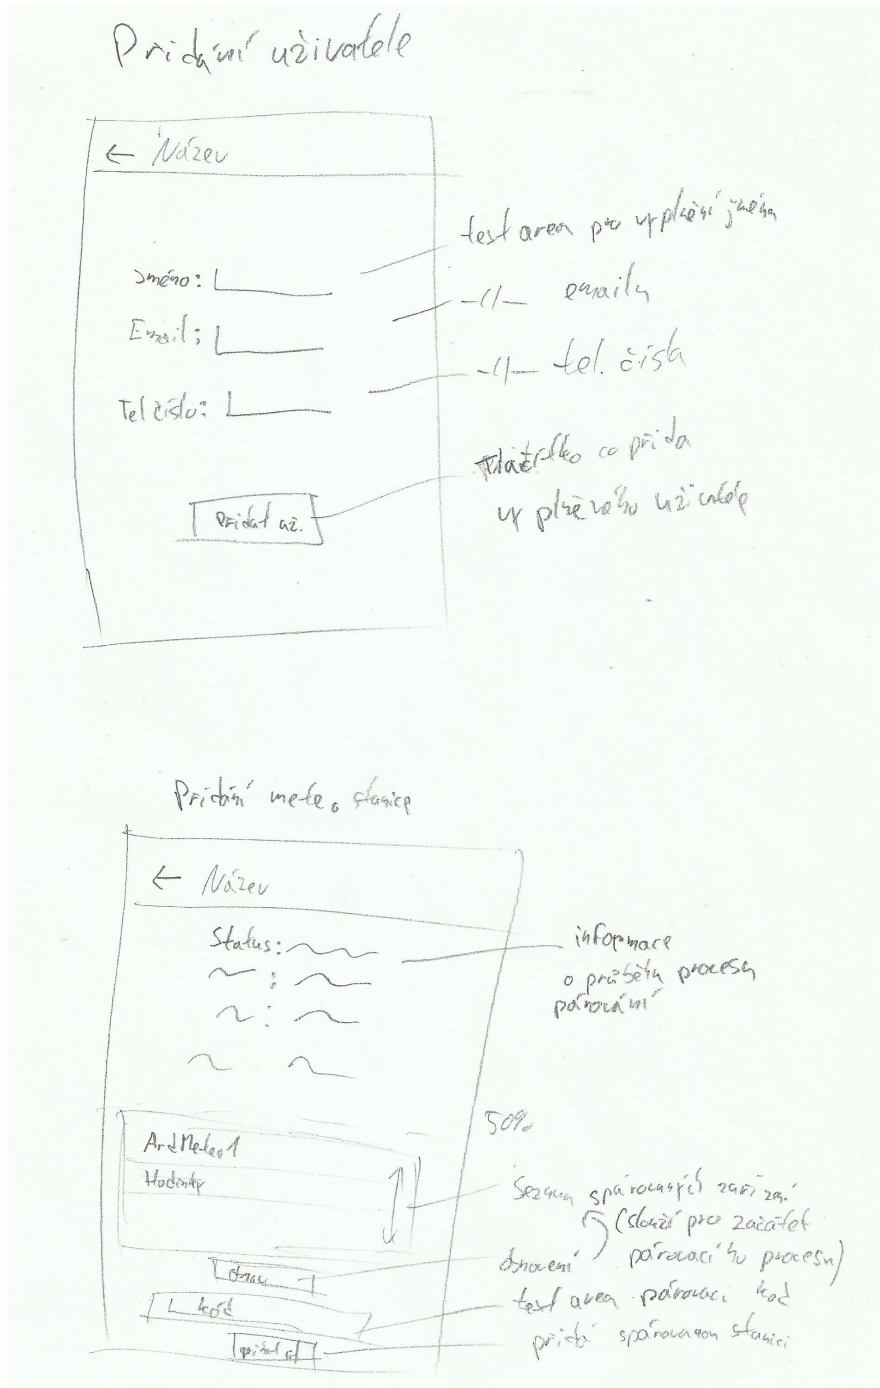 Přidání uživatele
← Název
Jméno:
Email:
Tel číslo:
Přidat už.
text area pro vyplnění jména
-//- emailu
-//- tel. čísla
tlačítko co přidá
vyplněného uživatele
Přidání meteo stanice
← Název
Status:
informace
o průběhu procesu
párování
50%
ArdMeteo1
Hodinky
Seznam spárovaných zařízení
(slouží pro začátek
párovacího procesu)
obnovení
obnov
text area párovací kód
kód
přidá spárovanou stanici
přidat st